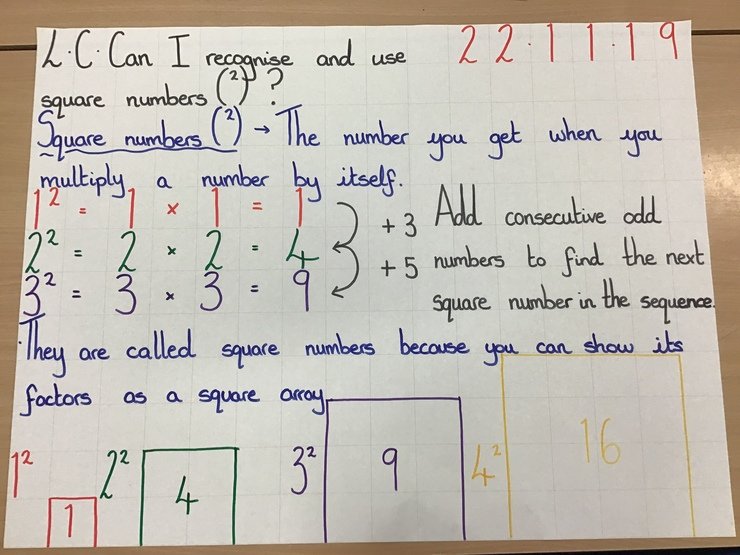 L.C. Can I recognise and use 22.11.19
square numbers (²)?
Square numbers (²) → The number you get when you
multiply a number by itself.
1² = 1 × 1 = 1
2² = 2 × 2 = 4
3² = 3 × 3 = 9
+3
+5
Add consecutive odd
numbers to find the next
square number in the sequence.
They are called square numbers because you can show its
factors as a square array
1² 1
2² 4
3² 9
4² 16